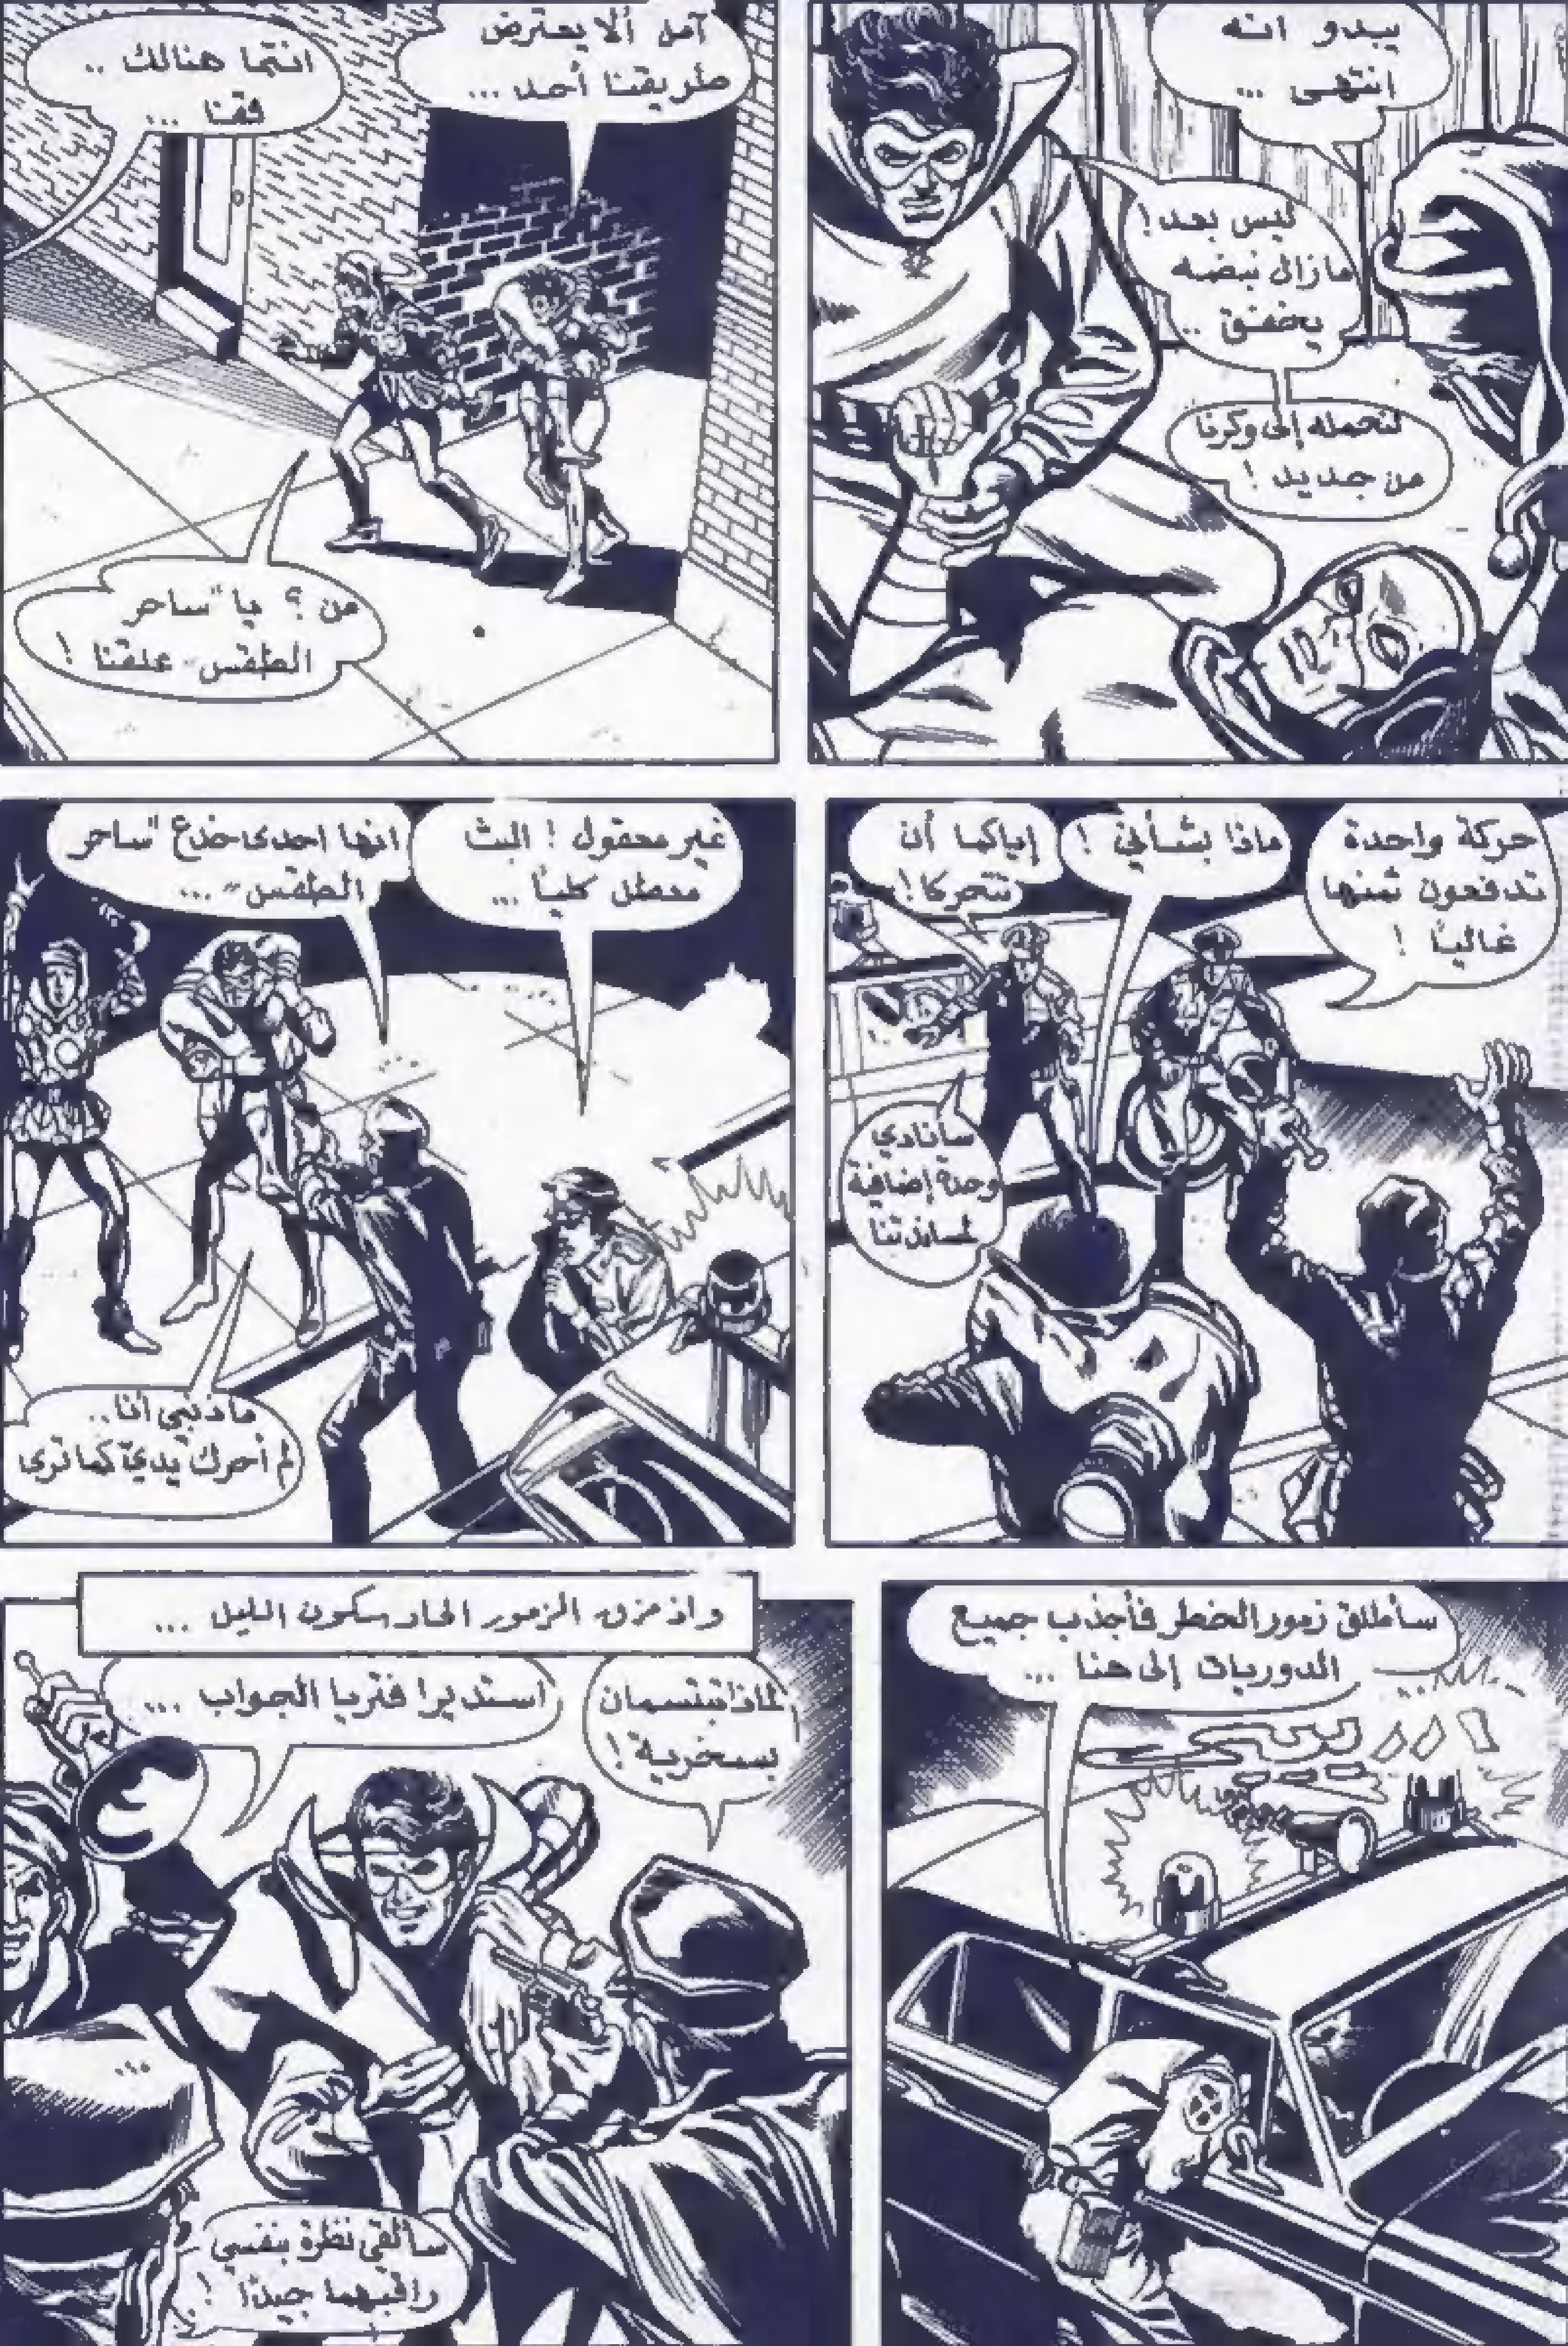 يبدو انه
انتهى ...
ليس بعد!
مازال نبضه
يخفق ..
لنحمله إلى وكرنا
من جديد !
آمل ألا يعترض
طريقنا أحد ...
انتما هنالك ..
قفا ...
من ؟ يا "ساحر
الطقس" علقنا !
حركة واحدة
تدفعون ثمنها
غالياً !
ماذا بشأني !
إياكما أن
تتحركا!
سأنادي
وحدة إضافية
لمساندتنا
غير معقول ! البث
معطل كلياً ...
انها احدى خدع "ساحر
الطقس" ...
ماذنبي أنا..
لم أحرك يديّ كما ترى
سأطلق زمور الخطر فأجذب جميع
الدوريات إلى هنا ...
واذ مزق الزمور الحاد سكون الليل ...
لماذا تبتسمان
بسخرية !
استديرا فتريا الجواب ...
سألقي نظرة بنفسي
راقبهما جيداً !